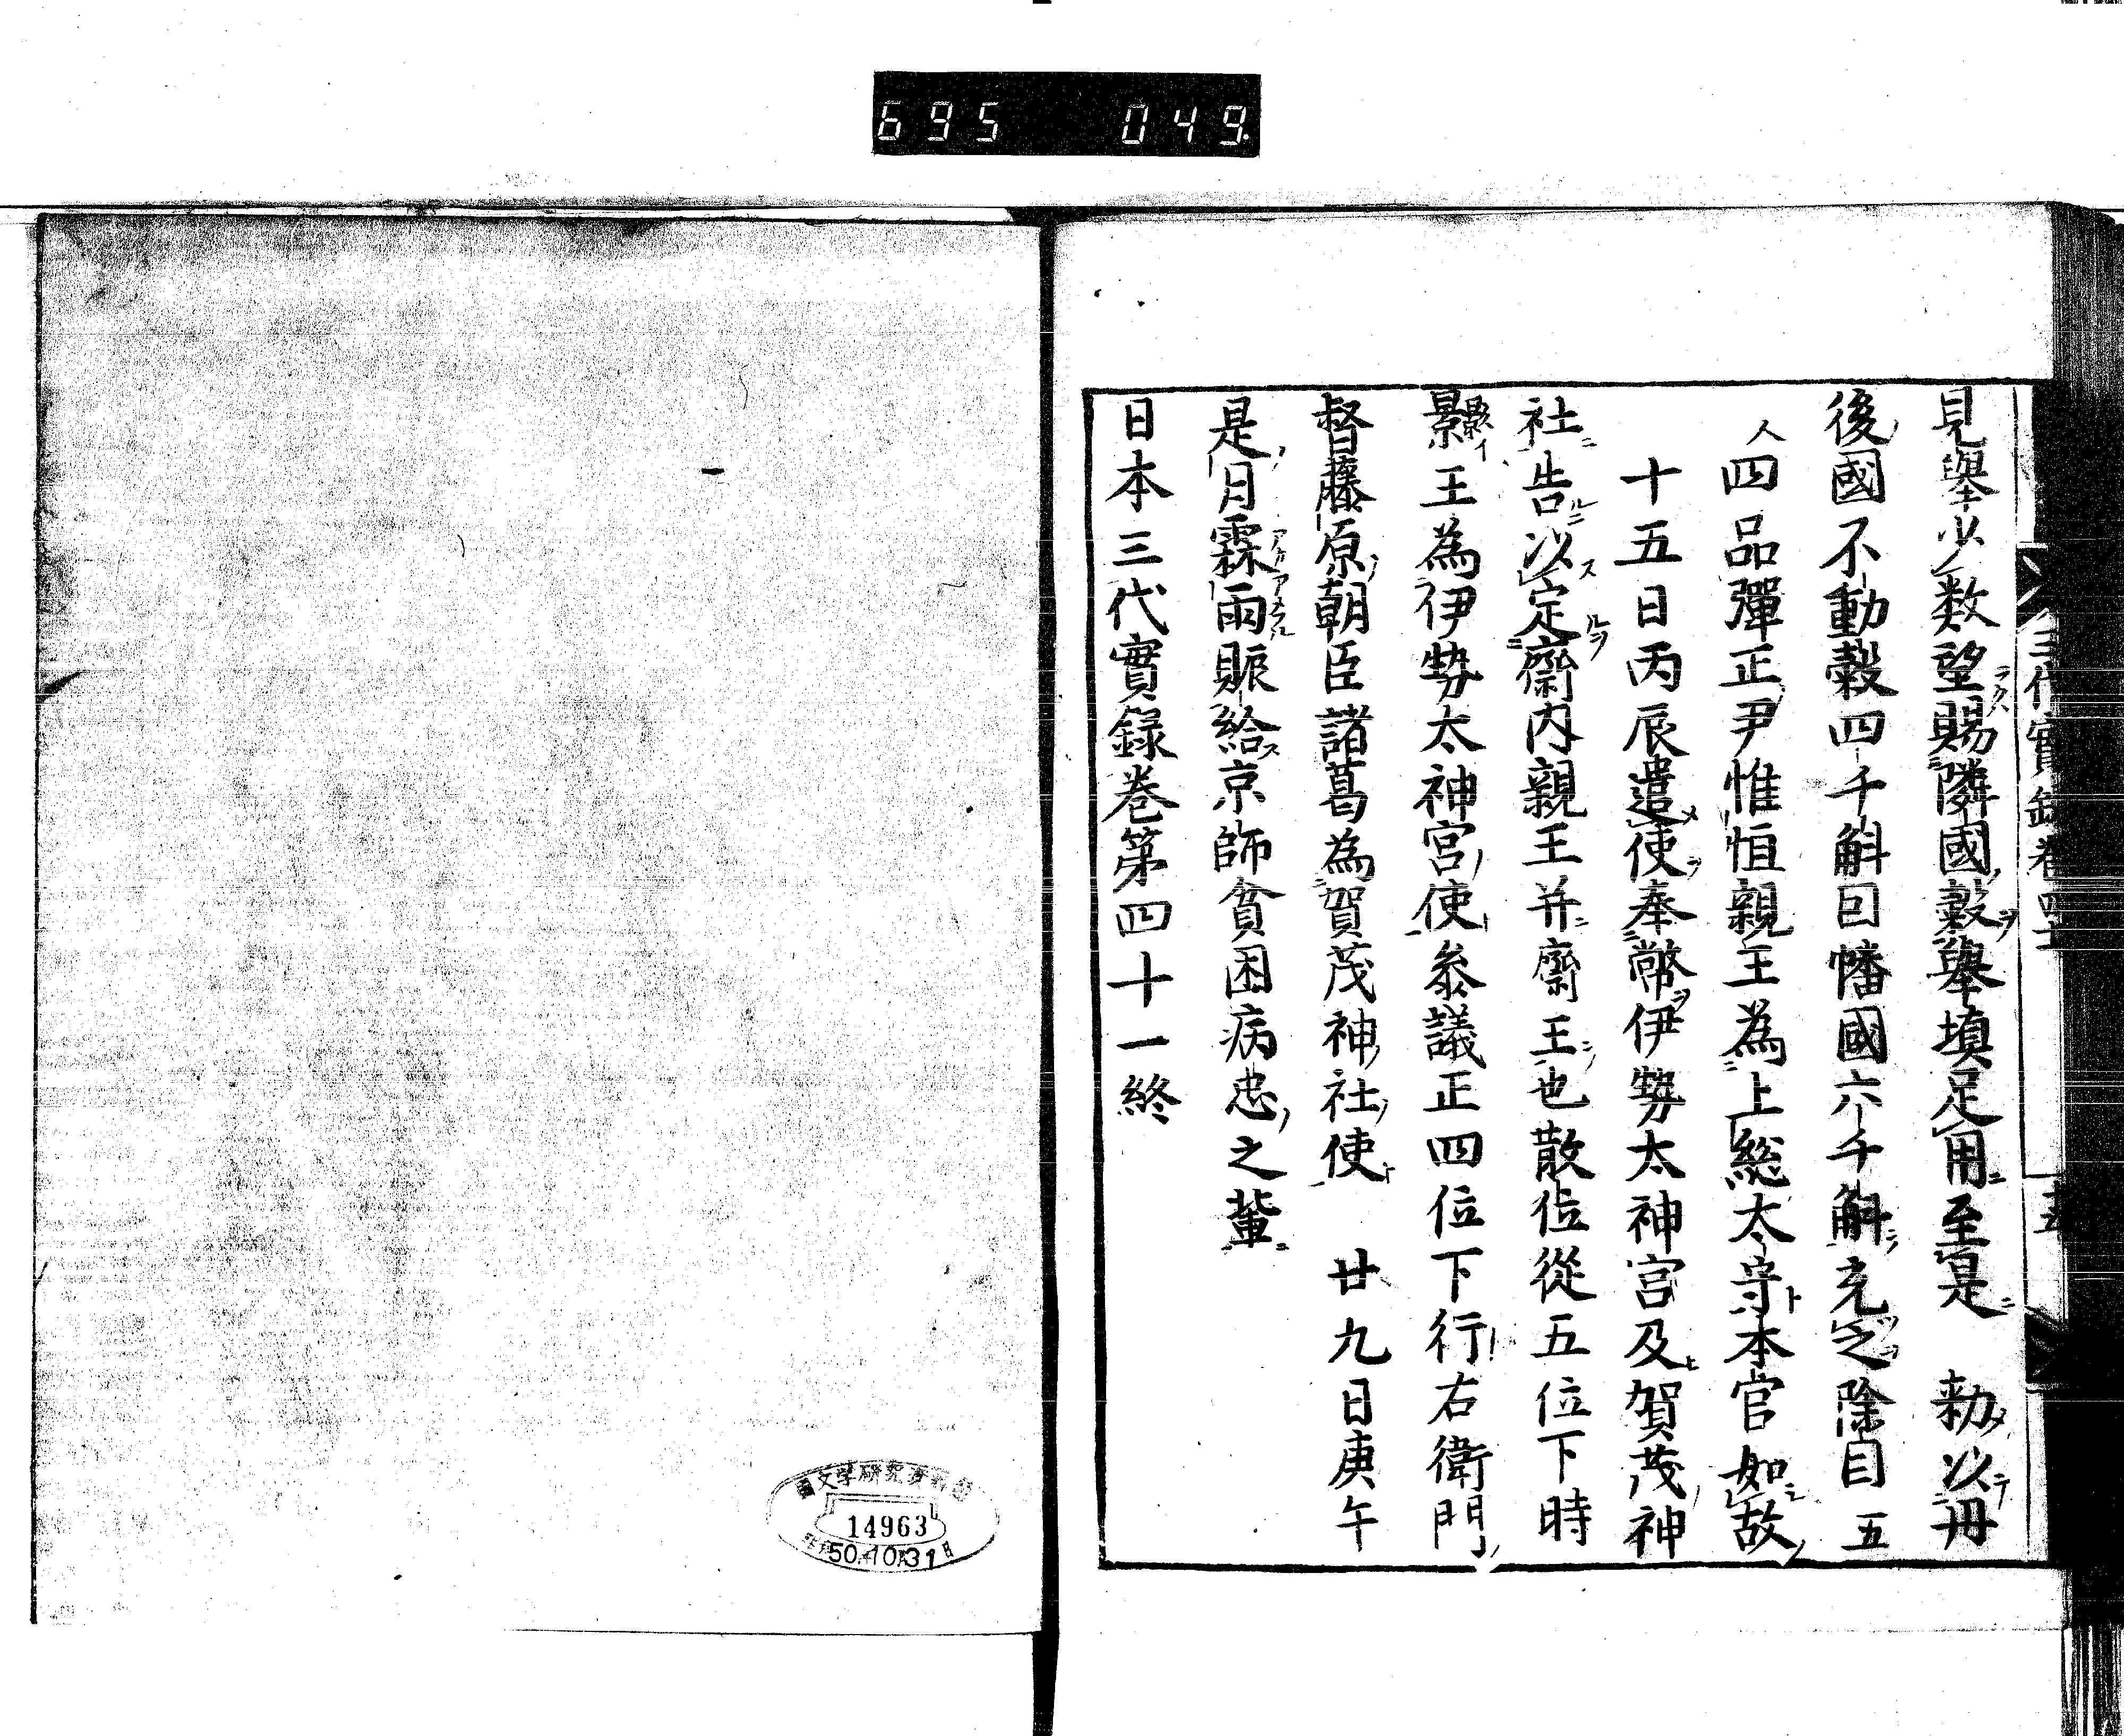 695 049
三代實録卷四十
十五
見舉少数望賜隣國穀舉填足用至是 勅以丹
後國不動穀四千斛因幡國六千斛充之除自五
人四品彈正尹惟恒親王為上総太守本官如故
十五日丙辰遣使奉幣伊勢太神宮及賀茂神
社告以定齋内親王并齋王也散位從五位下時
景王為伊勢太神宮使參議正四位下行右衛門
督藤原朝臣諸葛為賀茂神社使 廿九日庚午
是月霖雨賑給京師貧困病患之輩
日本三代實録巻第四十一終
國文学研究資料館
14963
50.10.31